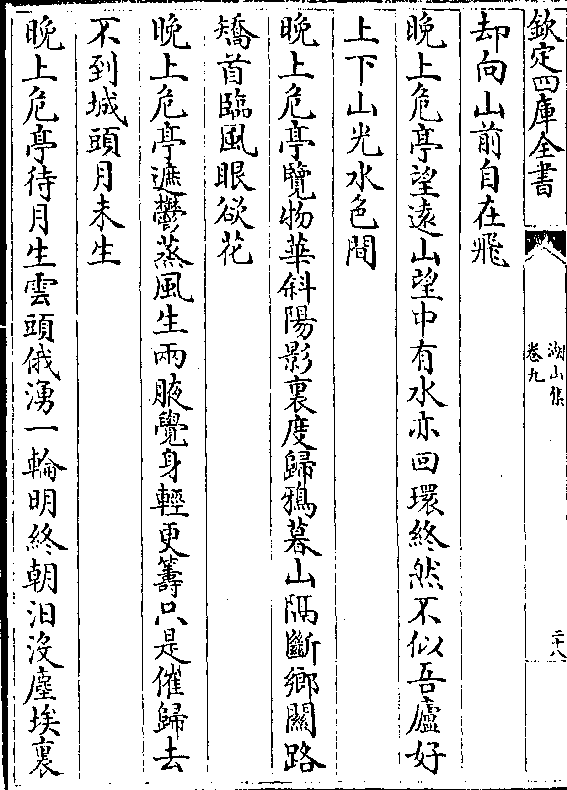 欽定四庫全書
湖山集
卷九
二十八
却向山前自在飛
晚上危亭望遠山望中有水亦回環終然不似吾廬好
上下山光水色間
晚上危亭覽物華斜陽影裏度歸鴉暮山隔斷鄉關路
矯首臨風眼欲花
晚上危亭遮鬱蒸風生兩腋覺身輕更籌只是催歸去
不到城頭月未生
晚上危亭待月生雲頭俄湧一輪明終朝汩沒塵埃裏